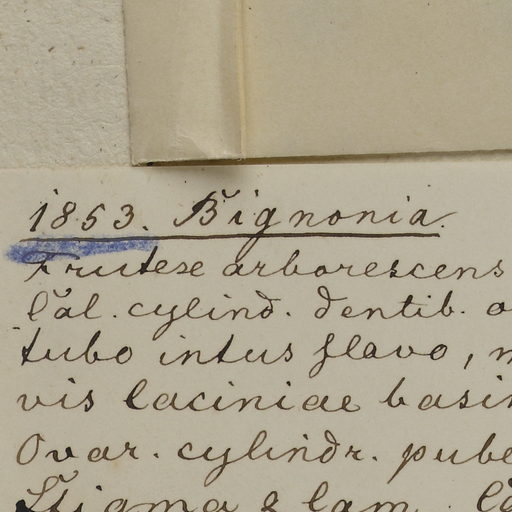 1853. Bignonia.
Frutex arborescens
Cal. cylind. dentib.
tubo intus flavo,
vis laciniae basi
Ovar. cylindr. pube
Stigma 2 lam.